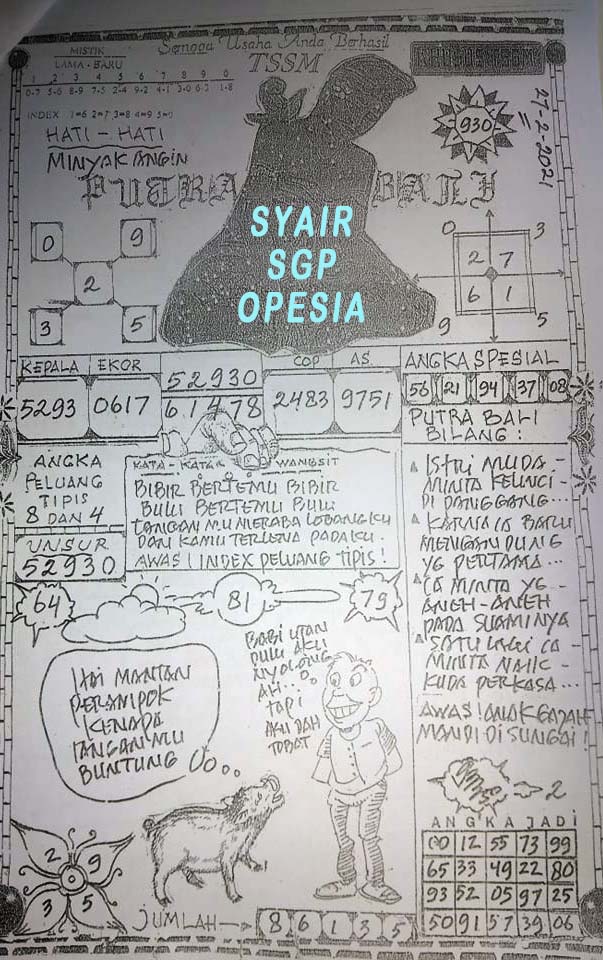 Semoga Usaha Anda Berhasil
TSSM
KHUSUS TSSM
MISTIK
LAMA - BARU
1 2 3 4 5 6 7 8 9 0
0-7 5-6 8-9 7-5 2-4 9-2 4-1 3-0 6-3 1-8
INDEX 1=6 2=7 3=8 4=9 5=0
HATI - HATI
MINYAK ANGIN
930
27-2-2021
PUTRA BALI
SYAIR
SGP
OPESIA
0 9
2
3 5
0 3
2 7
6 1
9 5
KEPALA EKOR
5293 0617
52930
61478
COP AS
2483 9751
ANGKA SPESIAL
56 21 94 37 08
PUTRA BALI
BILANG :
ISTRI MUDA -
MINTA KELINCI -
DI PANGGANG...
KARNA IA BARU
MENGANDUNG
YG PERTAMA...
IA MINTA YG -
ANEH-ANEH
PADA SUAMINYA
SATU LAGI IA -
MINTA NAIK -
KUDA PERKASA...
AWAS! ANAK GAJAH
MANDI DI SUNGAI!
ANGKA
PELUANG
TIPIS
8 DAN 4
UNSUR
52930
KATA - KATA WANGSIT
BIBIR BERTEMU BIBIR
BULU BERTEMU BULU
TANGAN MU MERABA LOBANGKU
DAN KAMU TERLENA PADAKU.
AWAS! INDEX PELUANG TIPIS!
64
81
79
BABI UTAN
DULU AKU
NYOLONG
AH...
TAPI
AKU DAH
TOBAT
HAI MANTAN
PERAMPOK
KENAPA
TANGAN MU
BUNTUNG
2 9
3 5
JUMLAH
8 6 1 3 5
2
ANGKA JADI
00 12 55 73 99
65 33 49 22 80
93 52 05 97 25
50 91 57 39 06